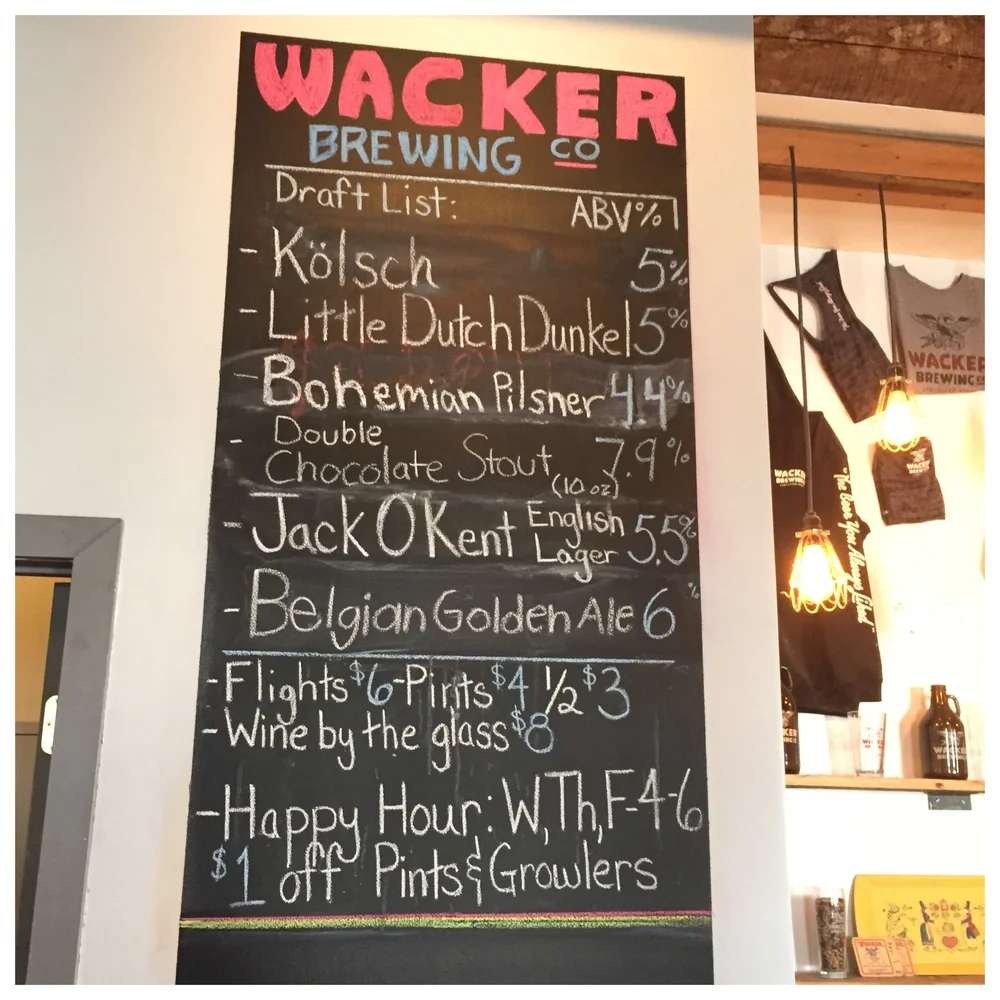 WACKER
BREWING CO
Draft List: ABV%
- Kölsch 5%
- Little Dutch Dunkel 5%
- Bohemian Pilsner 4.4%
- Double
Chocolate Stout 7.9%
(10 oz)
- Jack O'Kent English Lager 5.5%
- Belgian Golden Ale 6%
- Flights $6 - Pints $4 1/2 $3
- Wine by the glass $8
- Happy Hour: W, Th, F - 4-6
$1 off Pints & Growlers
WACKER
BREWING CO
WACKER
BREWING
"The Beer You Always Liked"
WACKER